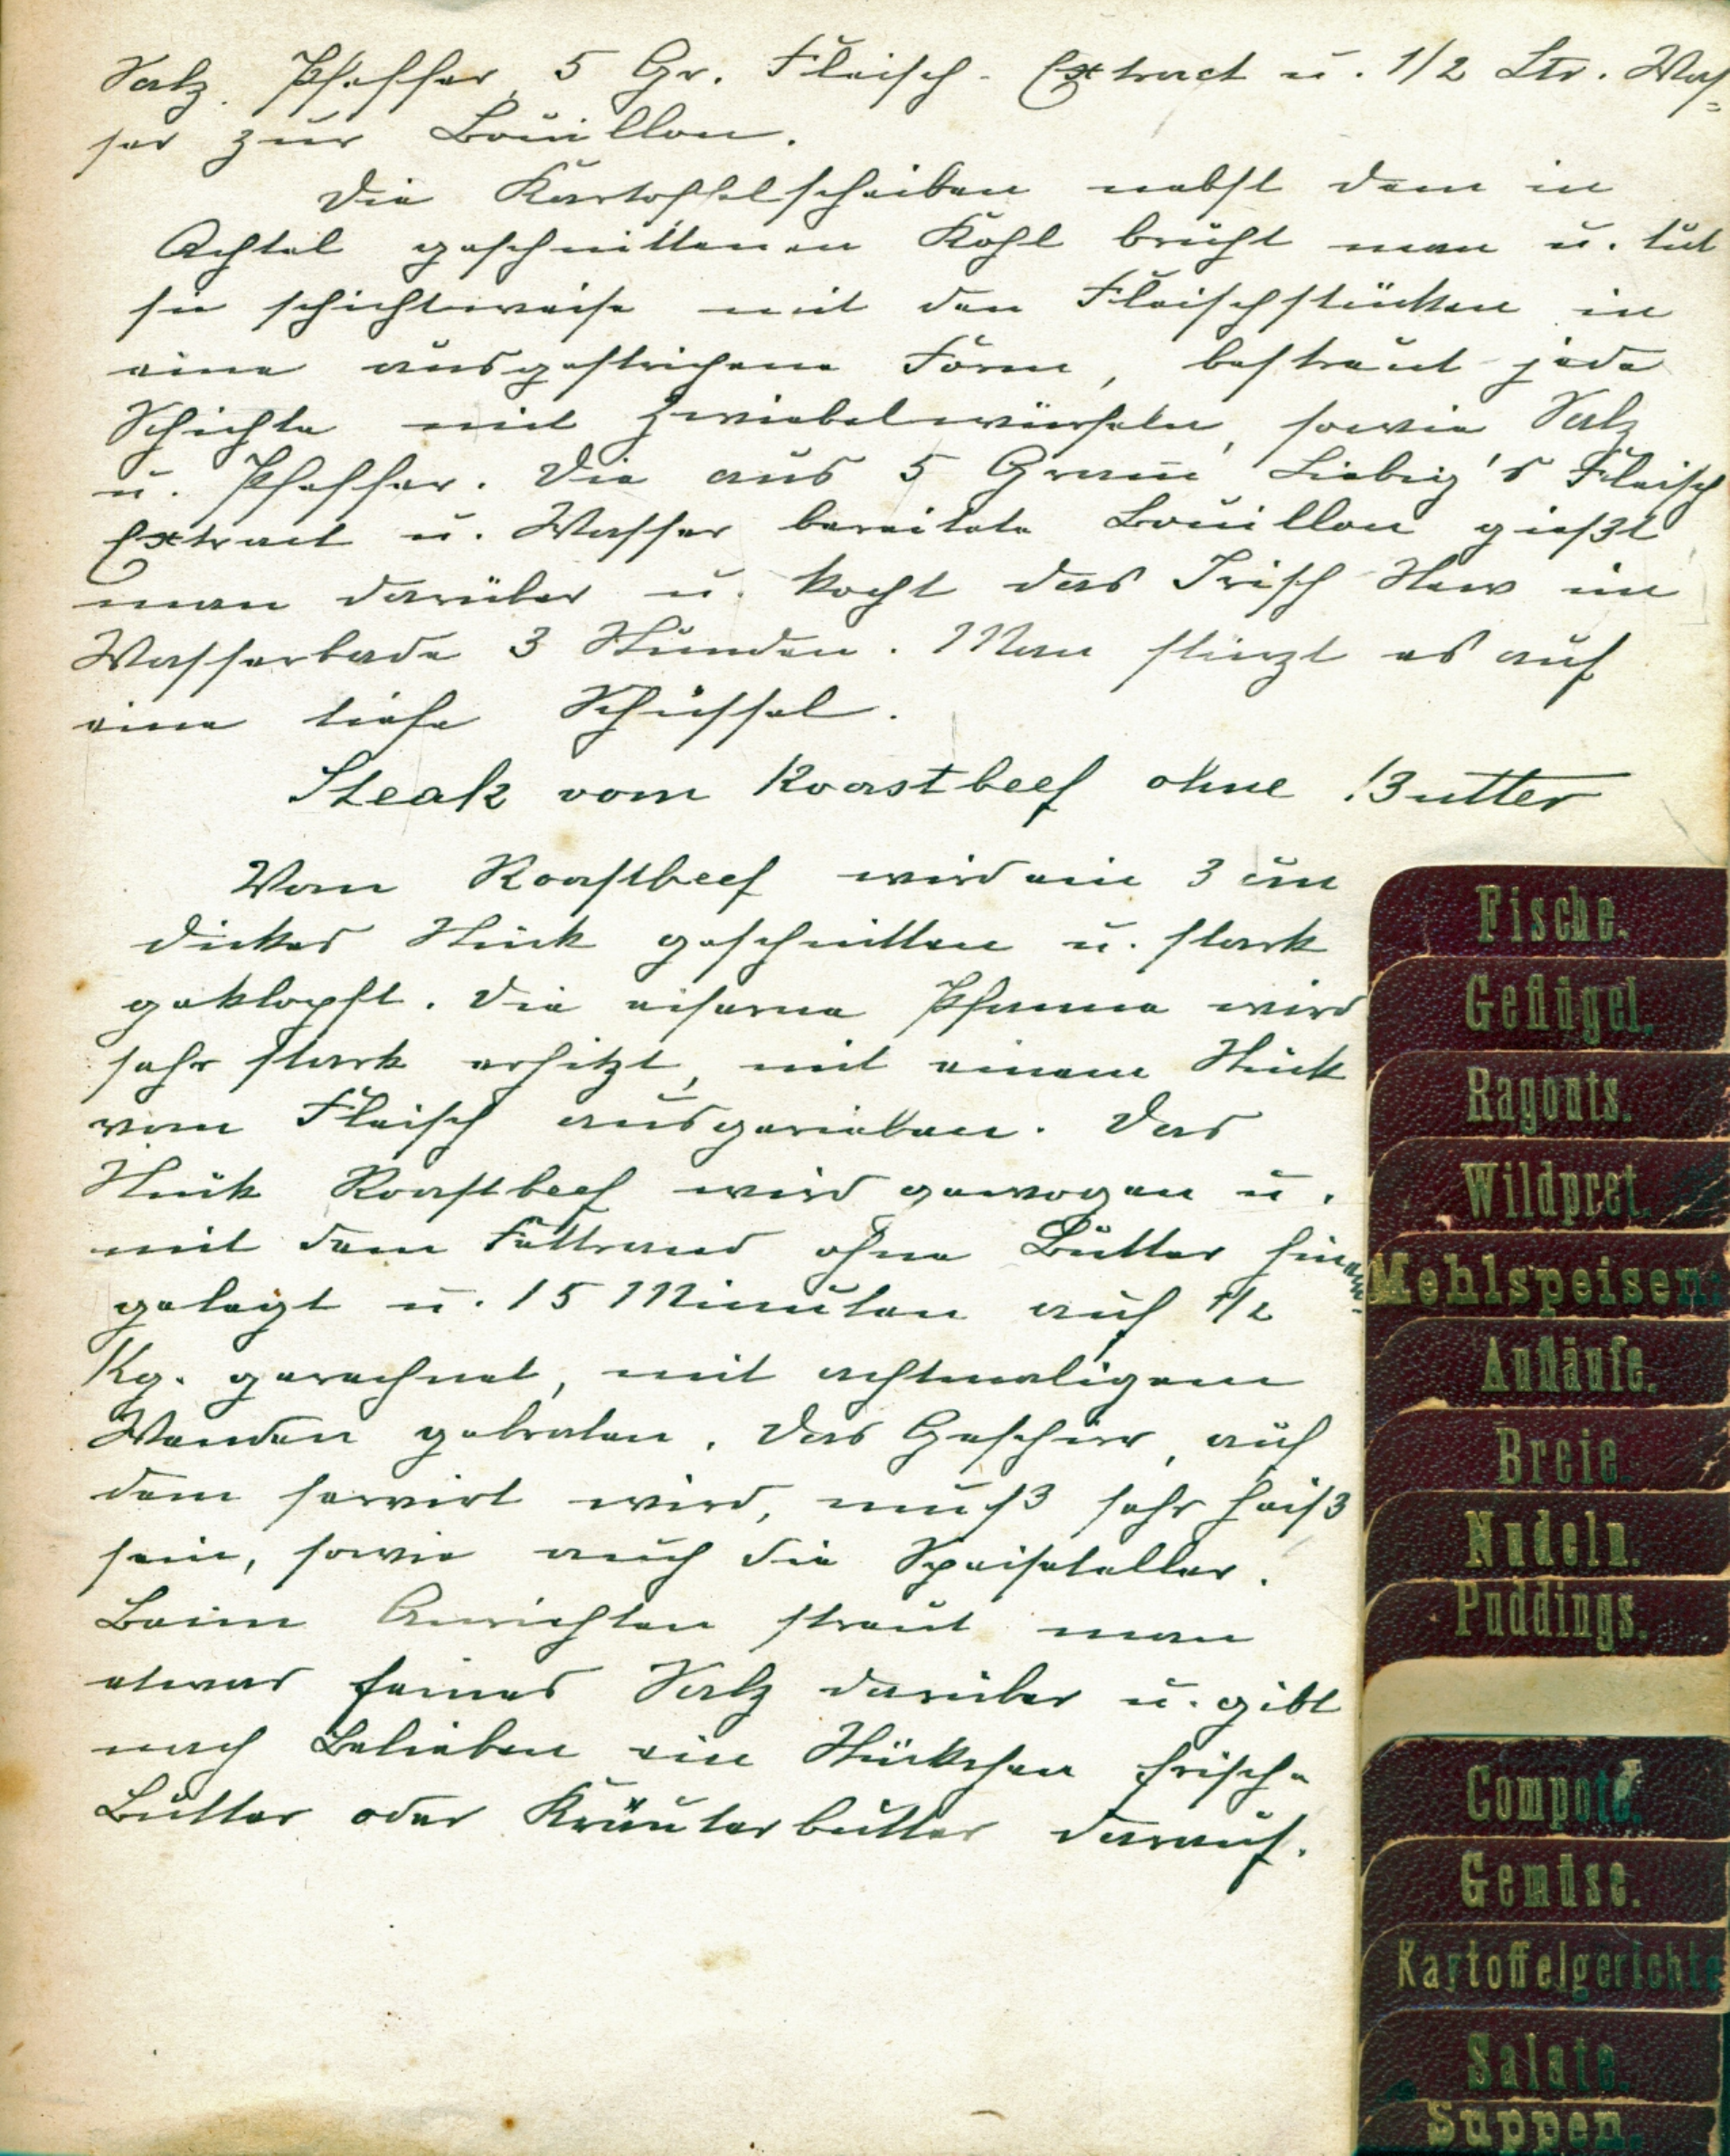 Salz, Pfeffer, 5 Gr. Fleisch-Extract u. 1/2 Ltr. Was=
ser zur Bouillon.
Die Kartoffelscheiben nebst dem in
Achtel geschnittenen Kohl brüht man u. tut
sie schichtweise mit den Fleischstücken in
eine ausgestrichene Form, bestreut jede
Schichte mit Zwiebelwürfeln, sowie Salz
u. Pfeffer. Die aus 5 Gram̄ Liebig's Fleisch
Extract u. Wasser bereitete Bouillon gießt
man darüber u. kocht das Irisch Stew im
Wasserbade 3 Stunden. Man stürzt es auf
eine tiefe Schüssel.
Steak vom Roastbeef ohne Butter
Vom Roastbeef wird ein 3 cm
dickes Stück geschnitten u. stark
geklopft. Die eiserne Pfanne wird
sehr stark erhitzt, mit einem Stück
vom Fleisch ausgerieben. Das
Stück Roastbeef wird gewogen u.
mit dem Fettrand ohne Butter hinein
gelegt u. 15 Minuten auf 1/2
Kg. gerechnet, mit achtmaligem
Wenden gebraten. Das Geschirr, auf
dem servirt wird, muß sehr heiß
sein, sowie auch die Speiseteller.
Beim Anrichten streut man
etwas feines Salz darüber u. gibt
nach Belieben ein Stückchen frische
Butter oder Kräuterbutter darauf.
Fische.
Geflügel.
Ragouts.
Wildpret.
Mehlspeisen:
Aufläufe.
Breie.
Nudeln.
Puddings.
Compote.
Gemüse.
Kartoffelgerichte
Salate.
Suppen.